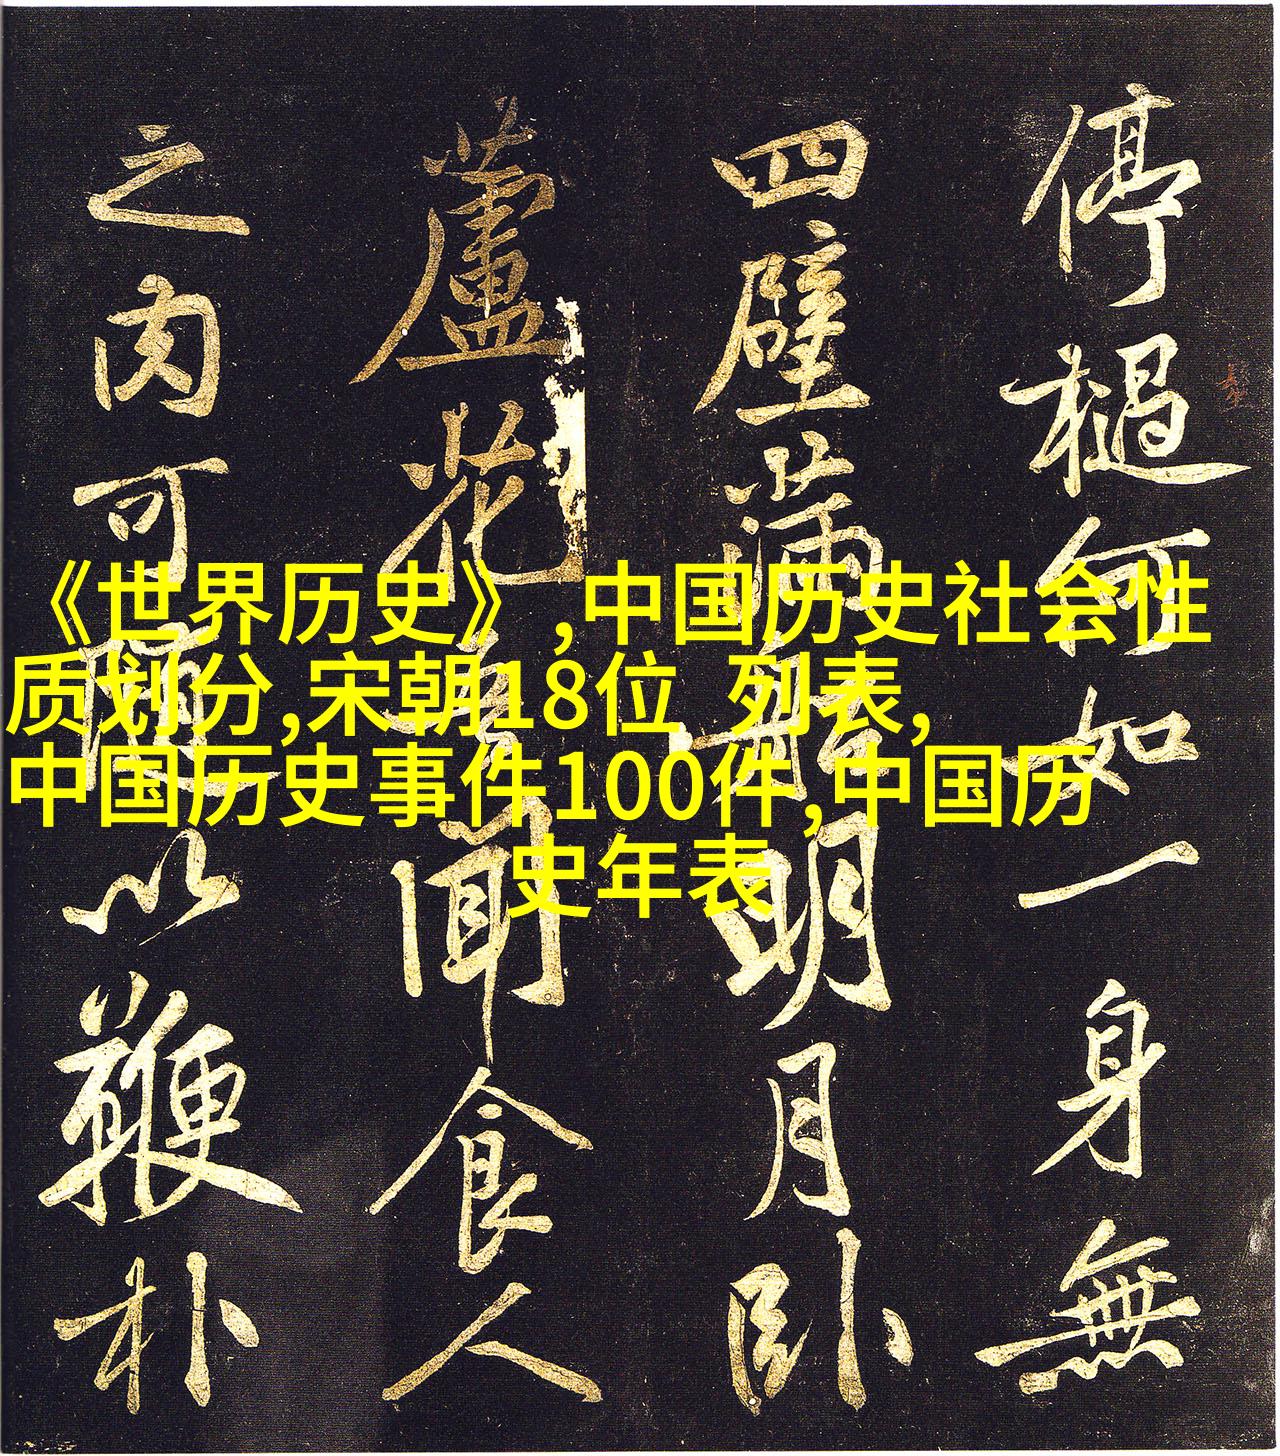 《世界历史》,中国历史社会性
质划分,宋朝18位 列表,
中国历史事件100件,中国历
史年表
停檛何如一身無
四壁滿明月卧
蘆花聞食人
之肉可隨以鞭朴